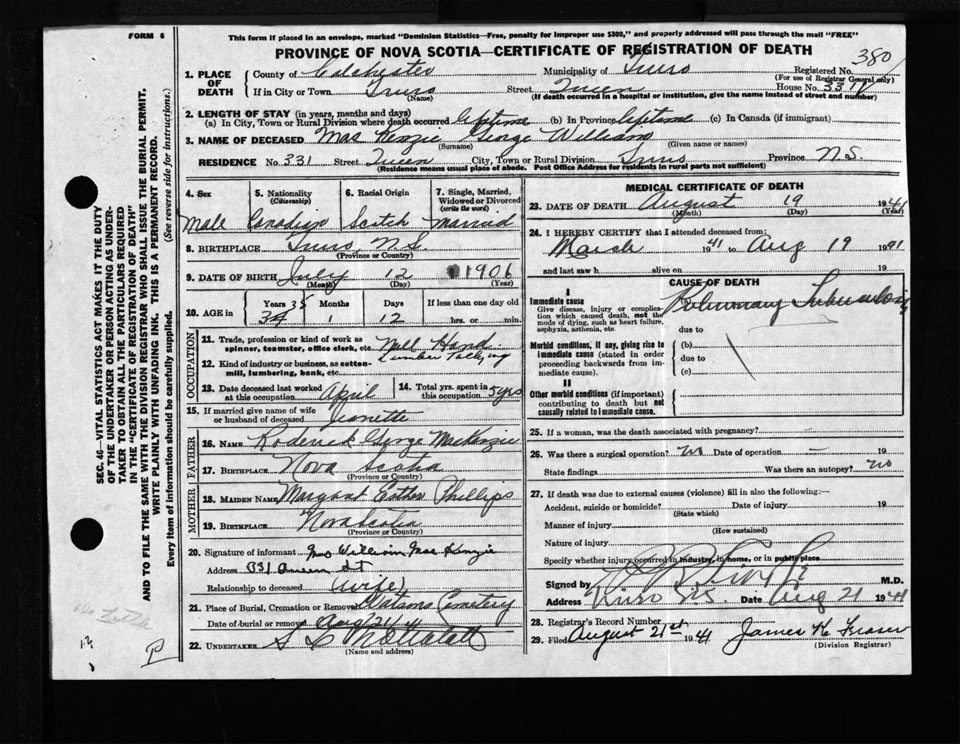 FORM 6
This form if placed in an envelope, marked "Dominion Statistics—Free, penalty for improper use $300," and properly addressed will pass through the mail "FREE"
PROVINCE OF NOVA SCOTIA—CERTIFICATE OF REGISTRATION OF DEATH
380
1. PLACE OF DEATH
County of Colchester Municipality of Truro Registered No.
(For use of Registrar General only)
If in City or Town Truro (Name) Street Queen House No. 331
(If death occurred in a hospital or institution, give the name instead of street and number)
2. LENGTH OF STAY (in years, months and days)
(a) In City, Town or Rural Division where death occurred lifetime (b) In Province lifetime (c) In Canada (if immigrant)
3. NAME OF DECEASED MacKenzie George William
(Surname) (Given name or names)
RESIDENCE No. 331 Street Queen City, Town or Rural Division Truro Province N.S.
(Residence means usual place of abode. Post Office Address for residents in rural parts not sufficient)
4. Sex Male
5. Nationality (Citizenship) Canadian
6. Racial Origin Scotch
7. Single, Married, Widowed or Divorced (write the word) Married
8. BIRTHPLACE Truro, N.S.
(Province or Country)
9. DATE OF BIRTH July 12 1906
(Month) (Day) (Year)
10. AGE in Years 34 35 Months 1 Days 12 If less than one day old hrs. or min.
OCCUPATION
11. Trade, profession or kind of work as spinner, teamster, office clerk, etc. Mill Hand
12. Kind of industry or business, as cotton-mill, lumbering, bank, etc. Lumber
13. Date deceased last worked at this occupation April
14. Total yrs. spent in this occupation 5 yrs
15. If married give name of wife or husband of deceased Jeanette
FATHER
16. NAME Roderick George MacKenzie
17. BIRTHPLACE Nova Scotia
(Province or Country)
MOTHER
18. MAIDEN NAME Margaret Esther Phillips
19. BIRTHPLACE Nova Scotia
(Province or Country)
20. Signature of informant Mrs William MacKenzie
Address 331 Queen St
Relationship to deceased (wife)
21. Place of Burial, Cremation or Removal Watsons Cemetery
Date of burial or removal Aug 21/41
22. UNDERTAKER
(Name and address)
MEDICAL CERTIFICATE OF DEATH
23. DATE OF DEATH August 19 1941
(Month) (Day) (Year)
24. I HEREBY CERTIFY that I attended deceased from:
March 1941 to Aug 19 1941
and last saw h alive on 19
CAUSE OF DEATH
I
Immediate cause
Give disease, injury or complication which caused death, not the mode of dying, such as heart failure, asphyxia, asthenia, etc.
Pulmonary Tuberculosis
due to
Morbid conditions, if any, giving rise to immediate cause (stated in order proceeding backwards from immediate cause).
(b)
due to
(c)
II
Other morbid conditions (if important) contributing to death but not causally related to immediate cause.
25. If a woman, was the death associated with pregnancy?
26. Was there a surgical operation? no Date of operation — 19
State findings Was there an autopsy? no
27. If death was due to external causes (violence) fill in also the following:—
Accident, suicide or homicide? Date of injury 19
(State which)
Manner of injury
(How sustained)
Nature of injury
Specify whether injury occurred in industry, in home, or in public place
Signed by M.D.
Address Truro N.S. Date Aug 21 1941
28. Registrar's Record Number
29. Filed August 21st 1941 James H Fraser
(Division Registrar)
SEC. 46—VITAL STATISTICS ACT MAKES IT THE DUTY OF THE UNDERTAKER OR PERSON ACTING AS UNDERTAKER TO OBTAIN ALL THE PARTICULARS REQUIRED IN THE "CERTIFICATE OF REGISTRATION OF DEATH" AND TO FILE THE SAME WITH THE DIVISION REGISTRAR WHO SHALL ISSUE THE BURIAL PERMIT.
WRITE PLAINLY WITH UNFADING INK. THIS IS A PERMANENT RECORD.
Every item of information should be carefully supplied. (See reverse side for instructions.)
P